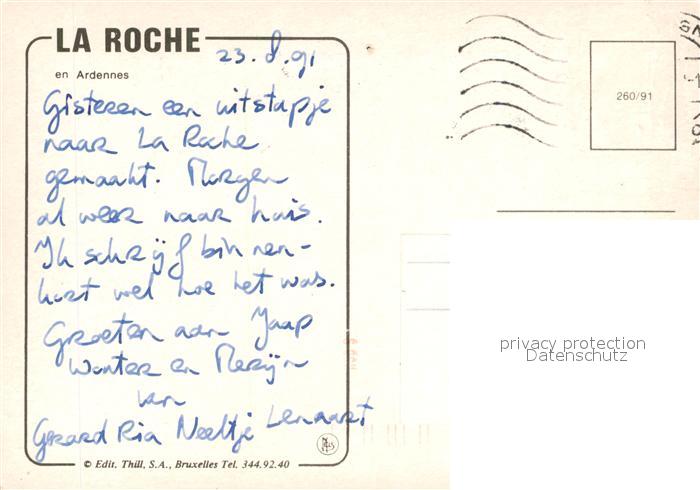 LA ROCHE
en Ardennes
23.8.91
Gisteren een uitstapje
naar La Roche
gemaakt. Morgen
al weer naar huis.
Ik schrijf binnen-
kort wel hoe het was.
Groeten aan Jaap
Wouter en Merijn
van
Gerard Ria Neeltje Lenaart
© Edit. Thill, S.A., Bruxelles Tel. 344.92.40
260/91
privacy protection
Datenschutz